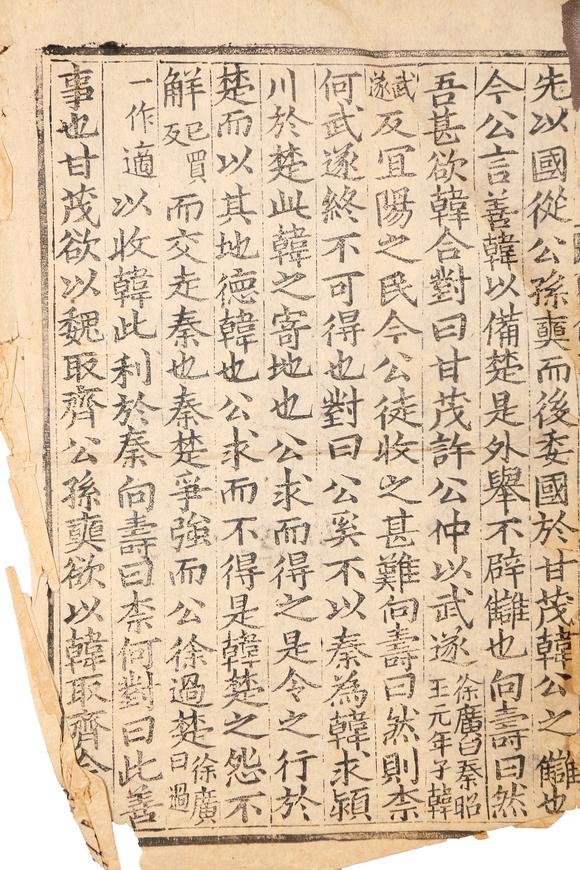 先以國從公孫奭而後委國於甘茂韓公之讎也
今公言善韓以備楚是外舉不辟讎也向壽曰然
吾甚欲韓合對曰甘茂許公仲以武遂徐廣曰秦昭王元年子韓
武遂反宜陽之民今公徒收之甚難向壽曰然則柰
何武遂終不可得也對曰公奚不以秦為韓求潁
川於楚此韓之寄地也公求而得之是令之行於
楚而以其地德韓也公求而不得是韓楚之怨不
觧已買反而交走秦也秦楚爭強而公徐過楚徐廣曰過
一作適以收韓此利於秦向壽曰柰何對曰此善
事也甘茂欲以魏取齊公孫奭欲以韓取齊今